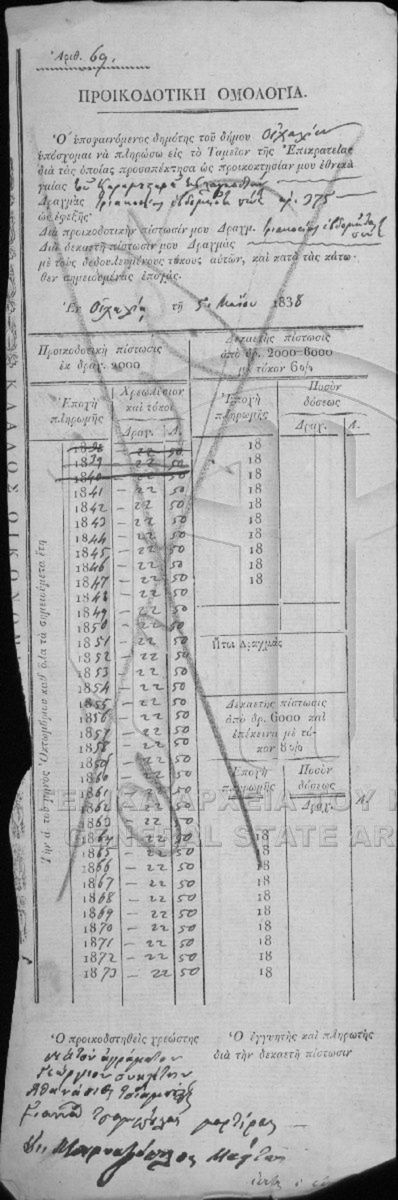 Ἀριθ. 69.
ΠΡΟΙΚΟΔΟΤΙΚΗ ΟΜΟΛΟΓΙΑ.
Ὁ ὑποφαινόμενος δημότης τοῦ δήμου Οἰχαλίας
ὑπόσχομαι νὰ πληρώσω εἰς τὸ Ταμεῖον τῆς Ἐπικρατείας
διὰ τὰς ὁποίας προσαπέκτησα ὡς προικοκτησίαν μου ἐθνικὰς
γαίας
Δραχμὰς τριακοσίας ἑβδομήκοντα πέντε ἀρ. 375
ὡς ἐφεξῆς
Διὰ προικοδοτικὴν πίστωσίν μου Δραχμ. τριακοσίας ἑβδομήκοντα πέντε
Διὰ δεκαετῆ πίστωσίν μου Δραχμὰς
μὲ τοὺς δεδουλευμένους τόκους αὐτῶν, καὶ κατὰ τὰς κάτω-
θεν σημειουμένας ἐποχάς.
Ἐν Οἰχαλίᾳ τῇ 5 Μαΐου 1838
Προικοδοτικὴ πίστωσις
ἐκ δραχ. 2000
Δεκαετὴς πίστωσις
ἀπὸ δρ. 2000-6000
μὲ τόκον 6 0/0
Ἐποχὴ
πληρωμῆς
Χρεωλύσιον
καὶ τόκοι
Δραχ. Λ.
Ἐποχὴ
πληρωμῆς
Ποσὸν
δόσεως
Δραχ. Λ.
1838 – 22 50 18
1839 – 22 50 18
1840 – 22 50 18
1841 – 22 50 18
1842 – 22 50 18
1843 – 22 50 18
1844 – 22 50 18
1845 – 22 50 18
1846 – 22 50 18
1847 – 22 50 18
1848 – 22 50
1849 – 22 50
1850 – 22 50
1851 – 22 50 Ἤτοι Δραχμὰς
1852 – 22 50
1853 – 22 50
1854 – 22 50
1855 – 22 50
1856 – 22 50
1857 – 22 50
1858 – 22 50
1859 – 22 50
1860 – 22 50
1861 – 22 50
1862 – 22 50
1863 – 22 50
1864 – 22 50 18
1865 – 22 50 18
1866 – 22 50 18
1867 – 22 50 18
1868 – 22 50 18
1869 – 22 50 18
1870 – 22 50 18
1871 – 22 50 18
1872 – 22 50 18
1873 – 22 50 18
Δεκαετὴς πίστωσις
ἀπὸ δρ. 6000 καὶ
ἐπέκεινα μὲ τό-
κον 8 0/0
Ἐποχὴ
πληρωμῆς
Ποσὸν
δόσεως
Δραχ. Λ.
Τὴν ά τοῦ μηνὸς Ὀκτωβρίου καθ' ὅλα τὰ σημειούμενα ἔτη
ΚΛΑΔΟΣ ΟΙΚΟΝΟΜ
ΓΕΝΙΚΑ ΑΡΧΕΙΑ ΤΟΥ
GENERAL STATE AR
Ὁ προικοδοτηθεὶς χρεώστης
Ὁ ἐγγυητὴς καὶ πληρωτὴς
διὰ τὴν δεκαετῆ πίστωσιν
Γεώργιον
Ἀθανάσιος
μάρτυρας
Μάρτυς